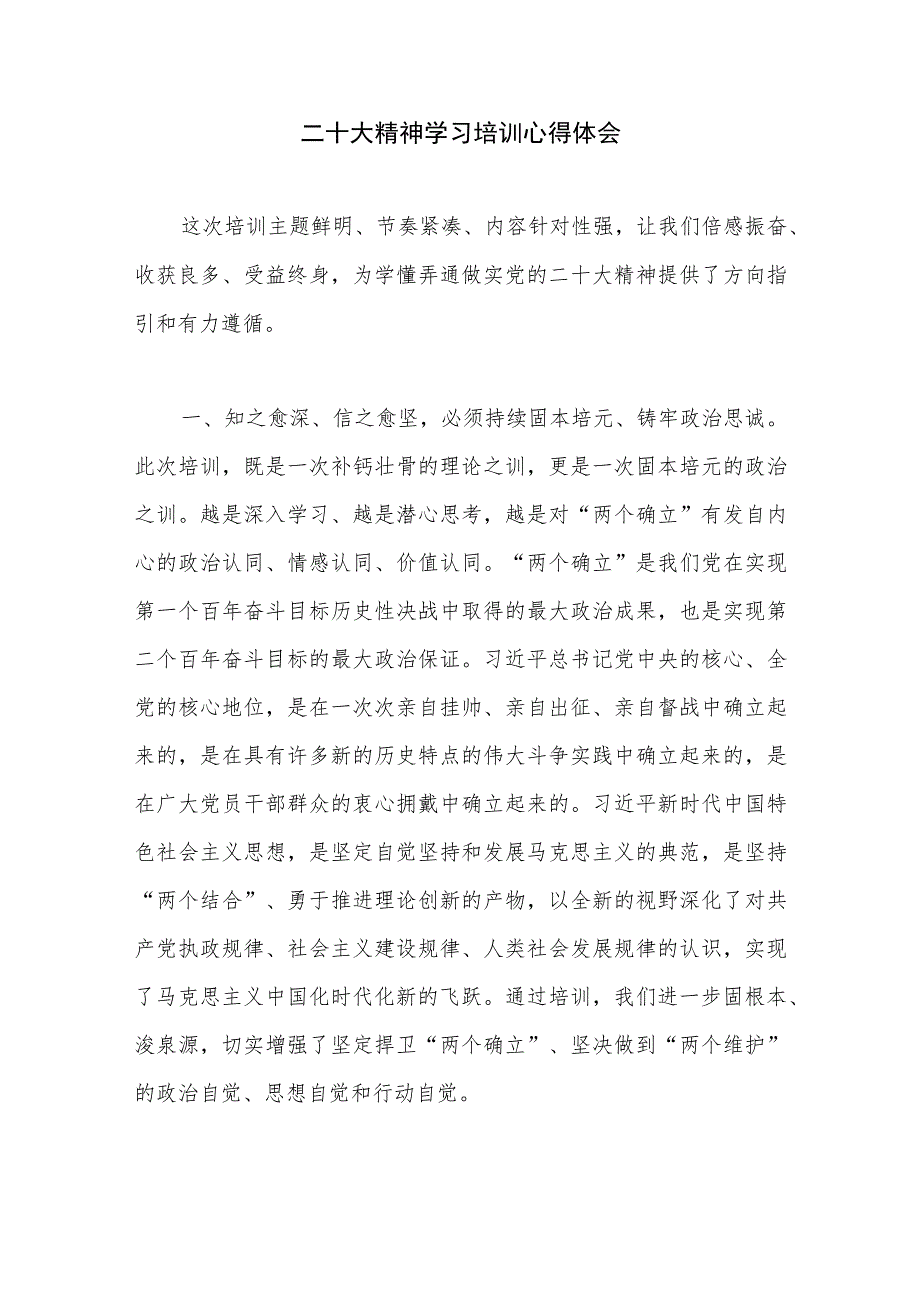 二十大精神学习培训心得体会
这次培训主题鲜明、节奏紧凑、内容针对性强，让我们倍感振奋、
收获良多、受益终身，为学懂弄通做实党的二十大精神提供了方向指
引和有力遵循。
一、知之愈深、信之愈坚，必须持续固本培元、铸牢政治思诚。
此次培训，既是一次补钙壮骨的理论之训，更是一次固本培元的政治
之训。越是深入学习、越是潜心思考，越是对“两个确立”有发自内
心的政治认同、情感认同、价值认同。“两个确立”是我们党在实现
第一个百年奋斗目标历史性决战中取得的最大政治成果，也是实现第
二个百年奋斗目标的最大政治保证。习近平总书记党中央的核心、全
党的核心地位，是在一次次亲自挂帅、亲自出征、亲自督战中确立起
来的，是在具有许多新的历史特点的伟大斗争实践中确立起来的，是
在广大党员干部群众的衷心拥戴中确立起来的。习近平新时代中国特
色社会主义思想，是坚定自觉坚持和发展马克思主义的典范，是坚持
“两个结合”、勇于推进理论创新的产物，以全新的视野深化了对共
产党执政规律、社会主义建设规律、人类社会发展规律的认识，实现
了马克思主义中国化时代化新的飞跃。通过培训，我们进一步固根本、
浚泉源，切实增强了坚定捍卫“两个确立”、坚决做到“两个维护”
的政治自觉、思想自觉和行动自觉。